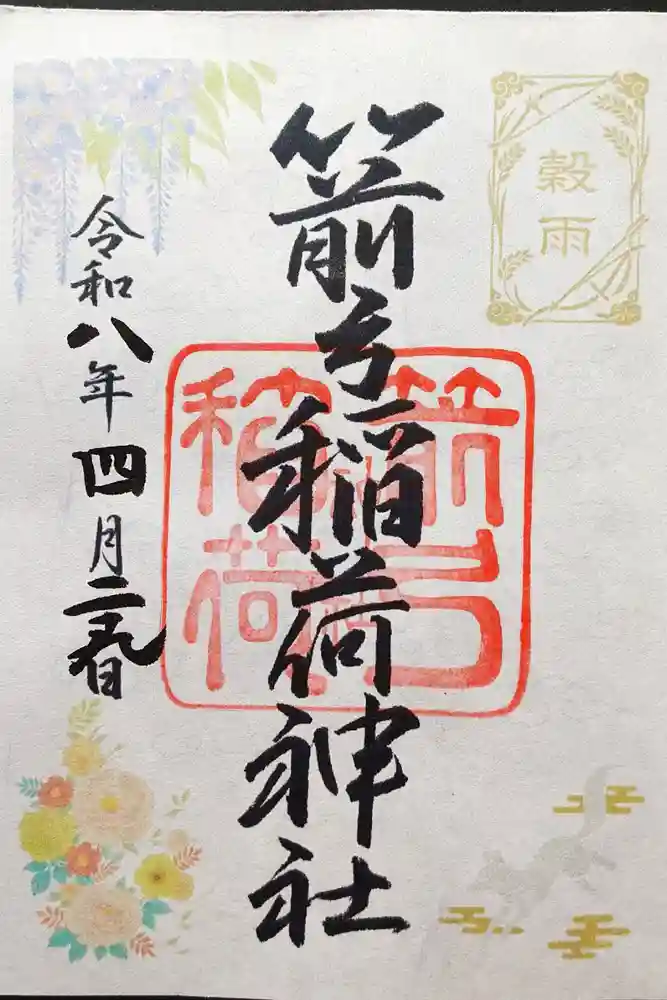 穀雨
箭弓稲荷神社
箭弓
稲荷
令和八年四月二十九日